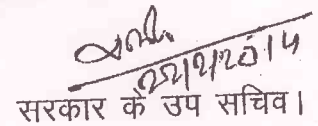 22/2/2014
सरकार के उप सचिव।